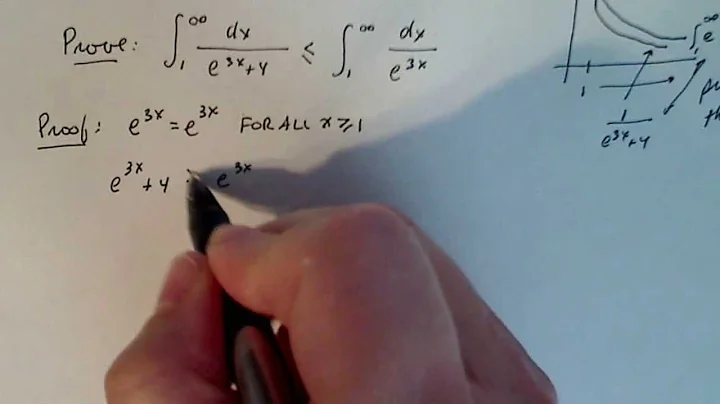 Prove: ∫₁^∞ dx/(e^{3x}+4) ≤ ∫₁^∞ dx/e^{3x}
Proof: e^{3x} = e^{3x} FOR ALL x ≥ 1
e^{3x}+4 e^{3x}
∫₁^∞ e
1
1/(e^{3x}+4)